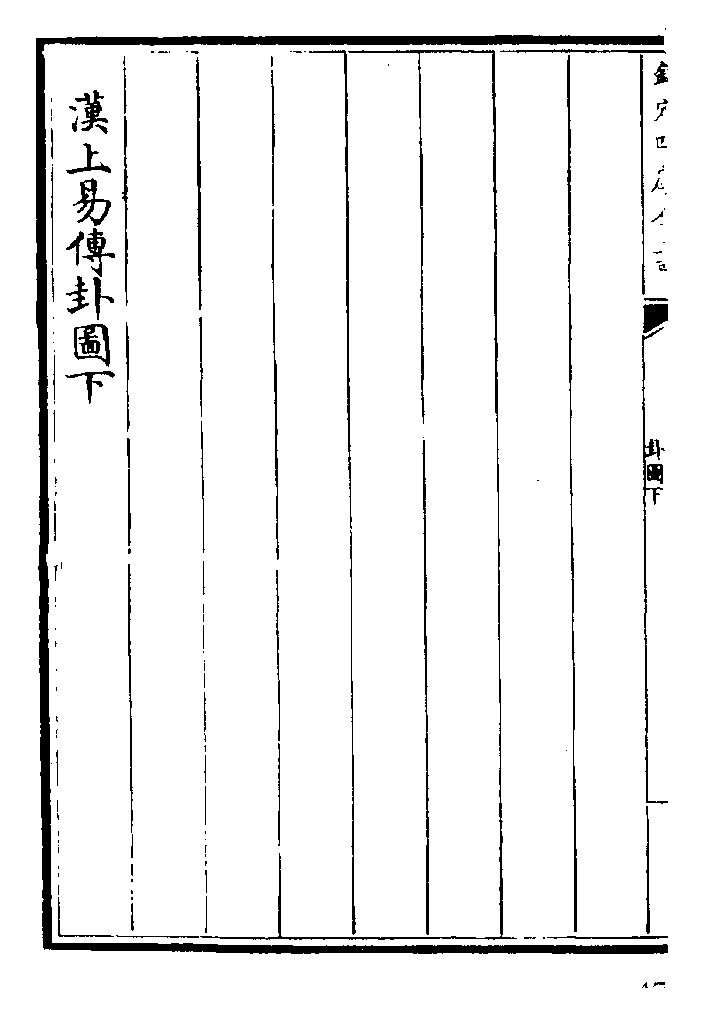 欽定四庫全書
卦圖下
漢上易傳卦圖下